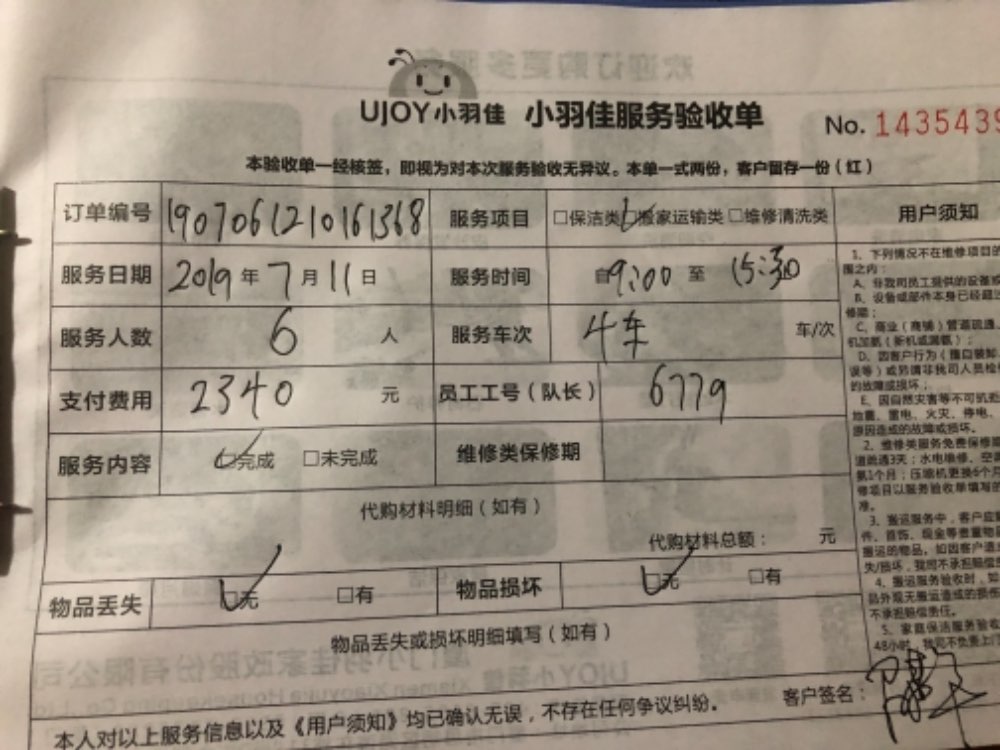 UJOY小羽佳 小羽佳服务验收单
No. 1435439
本验收单一经核签，即视为对本次服务验收无异议。本单一式两份，客户留存一份（红）
订单编号 1907061210161368 服务项目 □保洁类 ☑搬家运输类 □维修清洗类 用户须知
服务日期 2019年7月11日 服务时间 自9:00至15:30
服务人数 6人 服务车次 4车 车/次
支付费用 2340元 员工工号（队长） 6779
服务内容 ☑完成 □未完成 维修类保修期
代购材料明细（如有）
代购材料总额： 元
物品丢失 ☑无 □有 物品损坏 ☑无 □有
物品丢失或损坏明细填写（如有）
客户签名：
本人对以上服务信息以及《用户须知》均已确认无误，不存在任何争议纠纷。
1、下列情况不在维修项目的
围之内：
A、非我司员工提供的设备或
B、设备或部件本身已经超过
修期；
C、商业（商铺）管道疏通、
机加氨（新机或漏氨）；
D、因客户行为（擅自装卸、
误等）或另请非我司人员检修
的故障或损坏；
E、因自然灾害等不可抗拒
地震、雷电、火灾、停电、
原因造成的故障或损坏。
2、维修类服务免费保修期
道疏通3天；水电维修、空调
氨1个月；压缩机更换6个月
修项目以服务验收单填写的
准。
3、搬运服务中，客户应
件、首饰、现金等贵重物
搬运的物品，如因客户遗
失/损坏，我司不承担赔偿责
4、搬运服务验收时，如
品外观无搬运造成的损伤
不承担赔偿责任。
5、家庭保洁服务验收
48小时，我司不负责上门